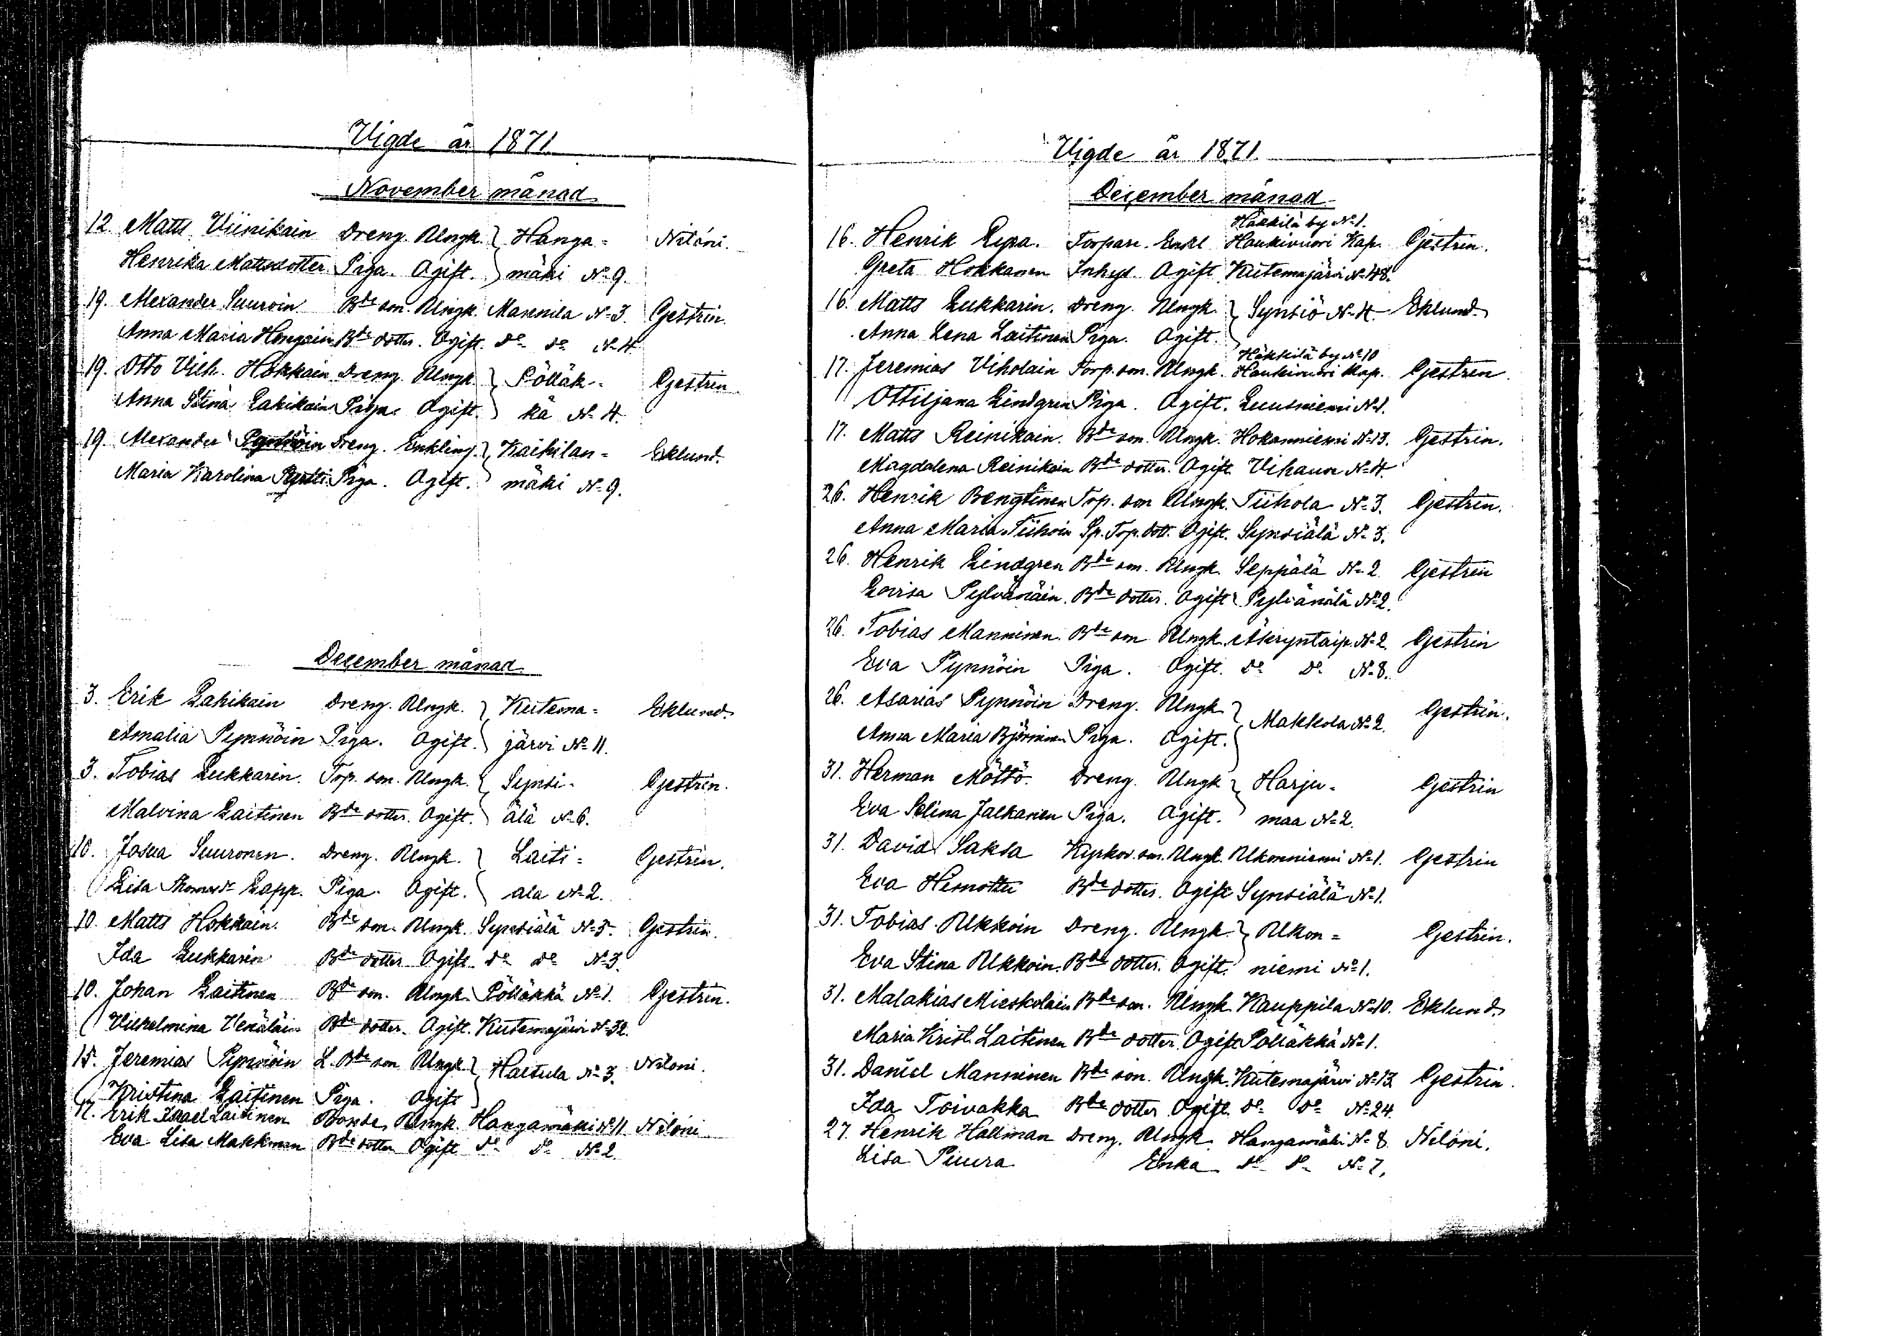 Vigde år 1871
November månad
12. Matts Viinikain Dreng. Ungk. Hanga= Nilóni.
Henrika Mattsdotter Piga. Ogift. mäki No 9.
19. Alexander Suuroin Bde son. Ungk. Mannila No 3. Gestrin.
Anna Maria Hongain Bde dotter. Ogift. do do No 4
19. Otto Vilh. Hokkain Dreng. Ungk. Pölläk= Gestrin
Anna Stina Lahikain Piga. Ogift. kä No 4.
19. Alexander Dreng. Enkling. Kaihilan= Eklund.
Maria Karolina Piga. Ogift. mäki No 9.
December månad
3. Erik Lahikain Dreng. Ungk. Kutema= Eklund.
Amalia Pynnöin Piga. Ogift. järvi No 11.
3. Tobias Lukkarin. Top. son. Ungk. Synsi= Gestrin.
Malvina Laitinen Bde dotter. Ogift. älä No 6.
10. Josua Suuronen. Dreng. Ungk. Laiti= Gestrin.
Lisa Thomasdr Lapp. Piga. Ogift. ala No 2.
10. Matts Hokkain. Bde son. Ungk. Synsiälä No 3. Gestrin.
Ida Lukkarin Bde dotter Ogift. do do No 3.
10. Johan Laitinen Bde son. Ungk. Pölläkkä No 1. Gestrin.
Vilhelmina Venäläin Bde dotter. Ogift. Kutemajärvi No 32.
15. Jeremias Pynnöin L. Bde son Ungk. Halttula No 3. Nilóni.
Kristina Laitinen Piga. Ogift
17. Erik Israel Laitinen Bonde, Ungk. Hangamäki No 11 Nilóni
Eva Lisa Makkonen Bde dotter Ogift do do No 2
Vigde år 1871.
December månad
Häkkilä by No 1.
16. Henrik Lypa. Torpare. Enkl Haukivuori Kap. Gestrin.
Greta Hokkanen Inhys. Ogift Kutemajärvi No 48.
16. Matts Lukkarin. Dreng. Ungk. Synsiö No 4. Eklund.
Anna Lena Laitinen Piga. Ogift.
Häkkilä by No 10
17. Jeremias Viholain Torp. son. Ungk. Haukivuori Kap. Gestrin.
Ottiljana Lindgren Piga. Ogift. Luusniemi No 1.
17. Matts Reinikain. Bde son. Ungk. Hokanniemi No 13. Gestrin.
Magdalena Reinikain Bde dotter. Ogift Vihavu No 4.
26. Henrik Bengtinen Top. son Ungk. Tiihola No 3. Gestrin.
Anna Maria Tiihoin Sp. Top. dott. Ogift. Synsiälä No 3.
26. Henrik Lindgren Bde son. Ungk. Seppälä No 2 Gestrin
Lovisa Pylvänäin. Bde dotter. Ogift Pylvänälä No 2.
26. Tobias Manninen. Bde son Ungk. No 2. Gestrin
Eva Pynnöin Piga. Ogift. do do No 8.
26. Asarias Pynnöin Dreng. Ungk Makkola No 2. Gestrin.
Anna Maria Björninen Piga. Ogift.
31. Herman Möttö. Dreng. Ungk Harju= Gestrin
Eva Selina Jalkanen Piga. Ogift. maa No 2.
31. David Saksa Kyrkov. son. Ungk. Ukonniemi No 1. Gestrin
Eva Bde dotter. Ogift Synsiälä No 1.
31. Tobias Ukkoin Dreng. Ungk. Ukon= Gestrin.
Eva Stina Ukkoin. Bde dotter. Ogift. niemi No 1.
31. Malakias Mieskolain Bde son. Ungk. Kauppila No 10. Eklund.
Maria Krist. Laitinen Bde dotter. Ogift Pölläkkä No 1.
31. Daniel Manninen Bde son. Ungk. Kutemajärvi No 13. Gestrin.
Ida Toivakka Bde dotter Ogift. do do No 24.
27. Henrik Hallman Dreng. Ungk. Hangamäki No 8 Nilóni.
Lisa Puura Enka do do No 7.